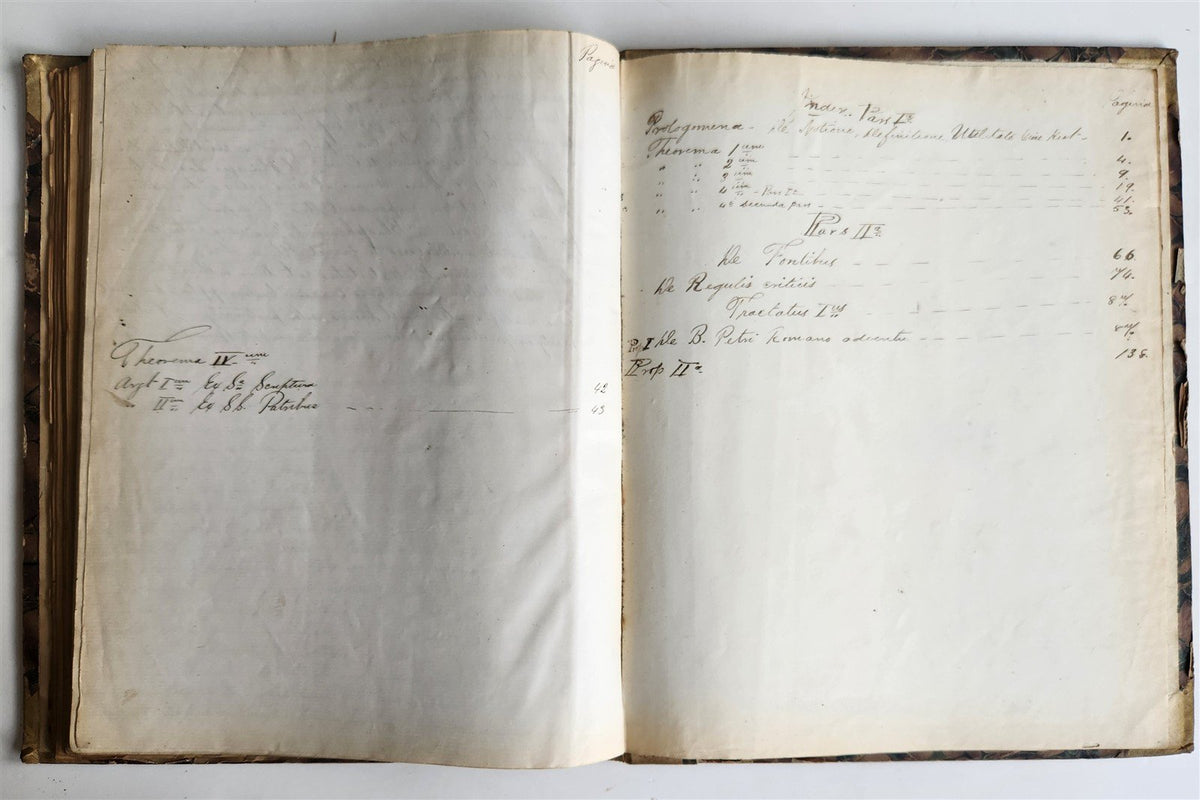 Pagina
Theorema IV um
Argt I um Ex Sa Scriptura 42
" II um Ex SS. Patribus 43
Index. Pars Ia Pagina
Prologomena - De Notione, Definitione, Utilitate 1.
Theorema 1 um 4.
" " 2 um 9.
" " 3 um 19.
" " 4 um - Pars Ia 41.
" " 4i Secunda pars 53.
Pars IIa
De Fontibus 66.
De Regulis criticis 74.
Tractatus I us
Prop I De B. Petri Romano adventu
Prop IIa 138.